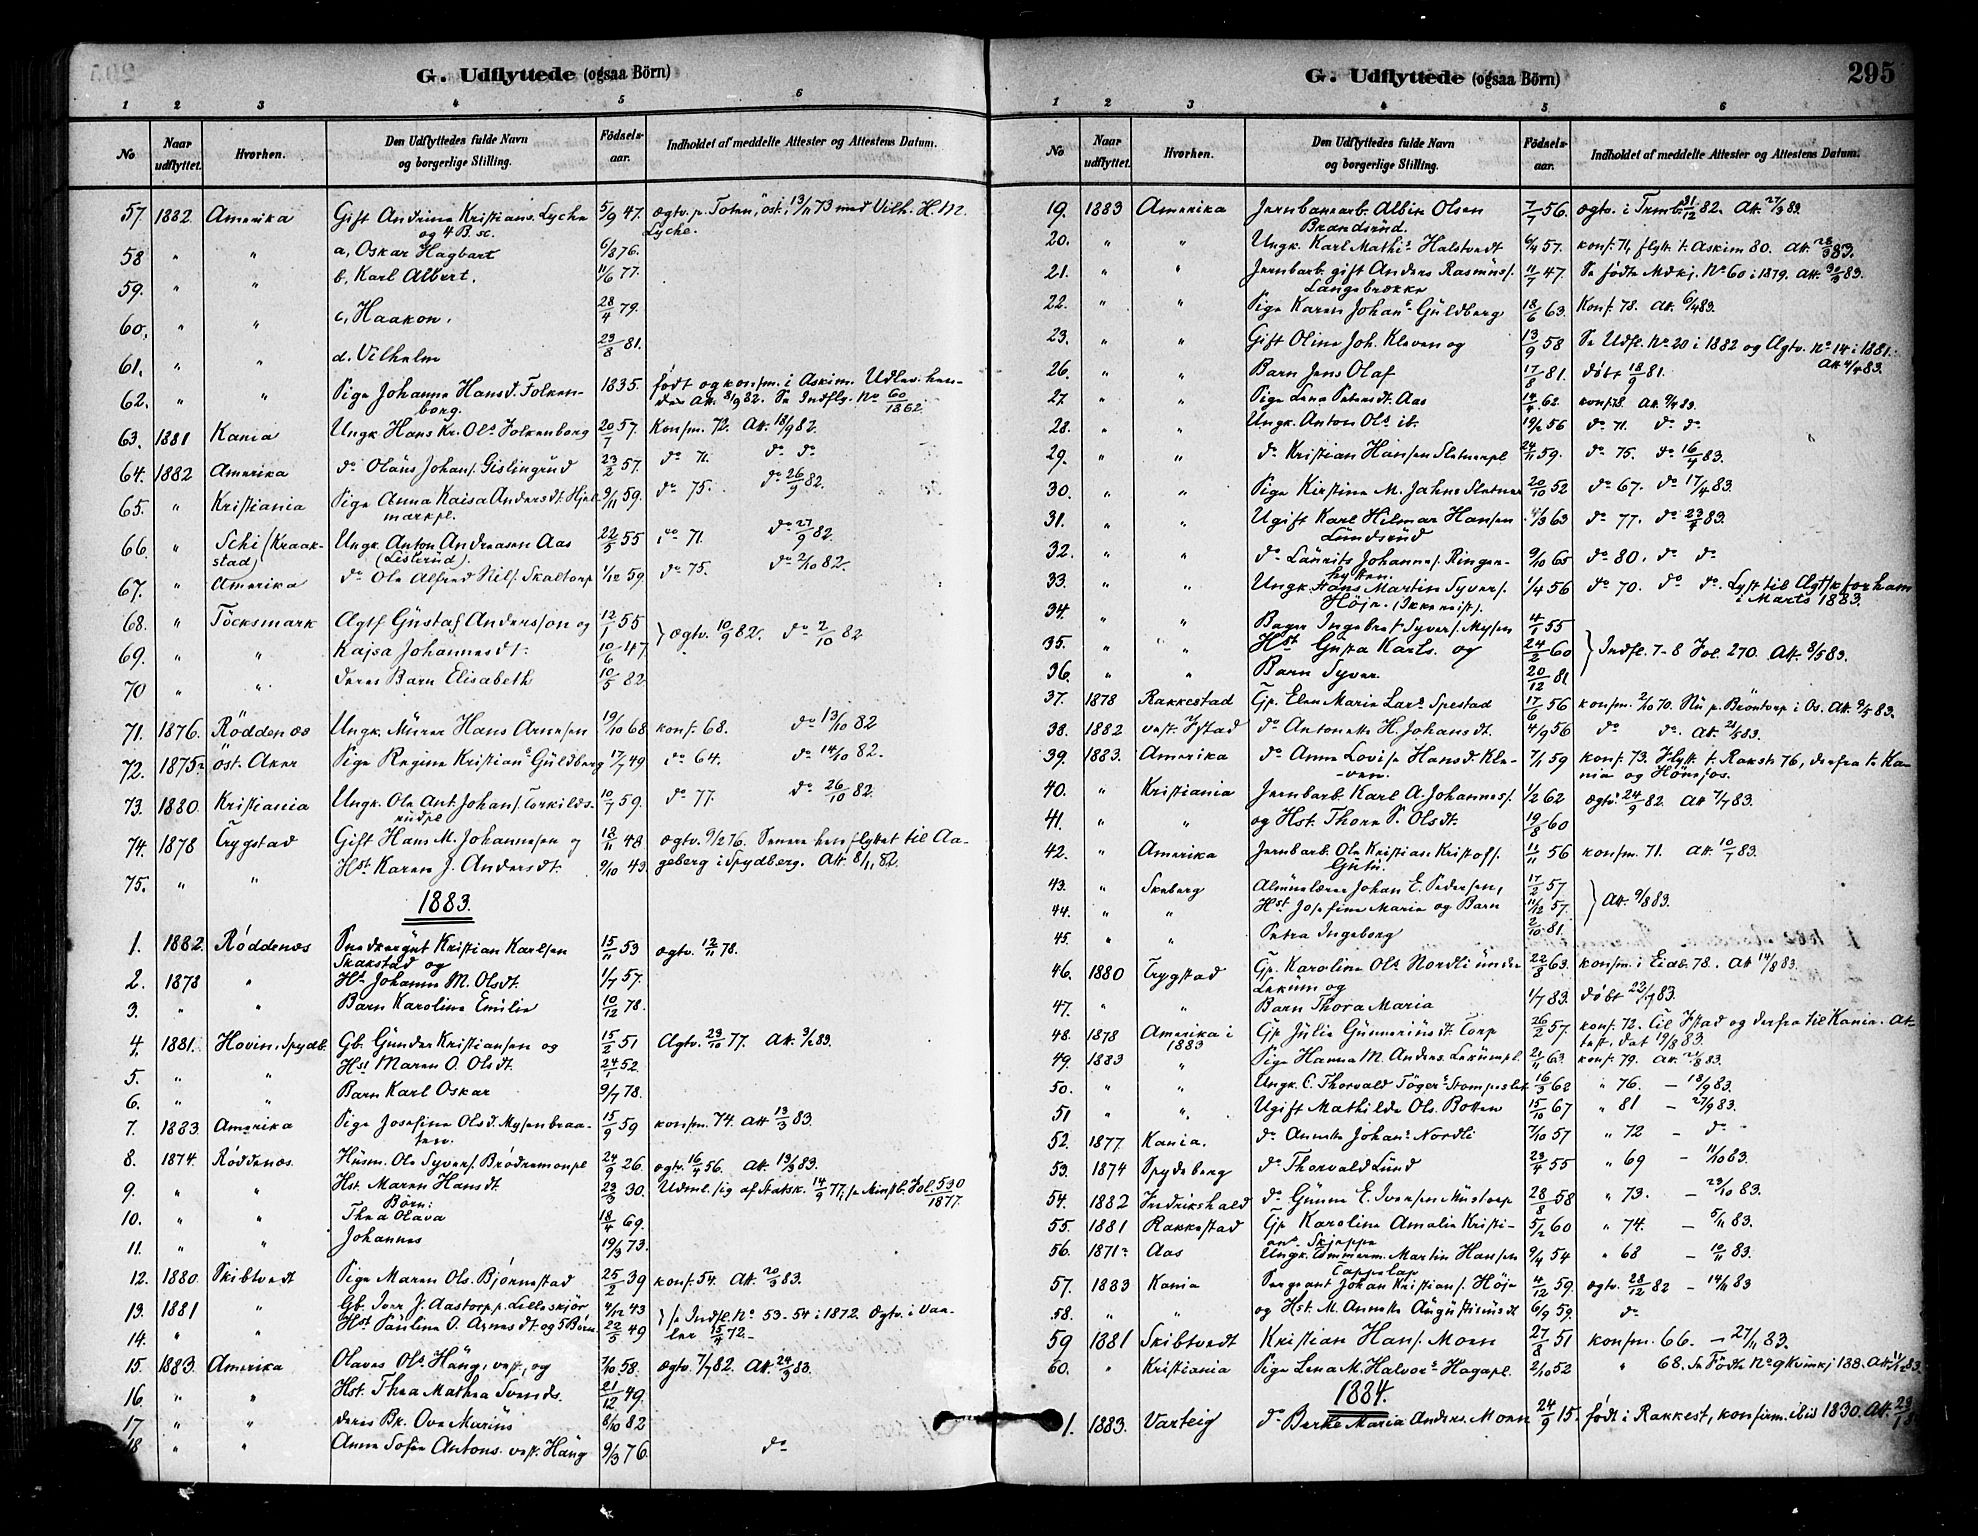 G. Udflyttede (ogsaa Börn)
1 2 3 4 5 6
No
Naar udflyttet.
Hvorhen.
Den Udflyttedes fulde Navn og borgerlige Stilling.
Födsels-aar.
Indholdet af meddelte Attester og Attestens Datum.
57. 1882. Amerika Gift Andrine Kristians. Lyche 5/9 47. ægtv. p. Toten, öst. 13/11 73 med Vilh. H. M.
og 4 B. sc. Lyche.
58 " " a, Oskar Hagbart 6/8 76.
59. " " b. Karl Albert. 11/6 77.
60. " " c, Haakon. 28/4 79.
61. " " d. Vilhelm 23/8 81.
62. " " Pige Johanne Hansd. Folken- 1835. født og konfm. i Askim. Udlev. hen-
borg. des Att. 8/9 82. Se Indfl. No 60/1862.
63. 1881 Kania Ungk. Hans Kr. Ols. Folkenborg 20/7 57. Konfm. 72. Att. 18/9 82.
64. 1882 Amerika do Olaus Johans. Gislingrud 23/2 57. do 71. do do
65. " Kristiania Pige Anna Kaisa Andersdt. Hjel- 9/11 59. do 75. do 26/9 82.
markpl.
66. " Schi (Kraak- Ungk. Anton Andreasen Aas 22/5 55 do 71. do 27/9 82.
stad) (Listerud).
67. " Amerika do Ole Alfred Nils. Skaltorp 1/12 59. do 75. do 2/10 82.
68. " Töcksmark Agtf Gustaf Andersson og 12/1 55
69. " " Kajsa Johannesdt. 10/6 47 } ægtv. 10/9 82. do 2/10 82
70 " " deres Barn Elisabeth 10/5 82.
71. 1876. Röddenæs Ungk. Murer Hans Arnesen 19/10 68 konf. 68. do 13/10 82
72. 1875? öst. Aker Pige Regine Kristians Guldberg 17/7 49 do 64. do 14/10 82.
73. 1880. Kristiania Ungk. Ole Ant. Johans. Torkilds- 10/7 59. do 77. do 26/10 82.
rudpl
74. 1878 Trygstad Gift Hans M. Johannesen og 12/11 48 ægtv. 9/12 76. Senere henflyttet til Aa-
75. " " Hst. Karen J. Andersdt. 9/10 43. geberg i Spydberg. Att. 8/11 82.
1883.
1. 1882. Røddenæs Snedkergut Kristian Karlsen 15/11 53 ægtv. 12/11 78.
Skakstad og
2. 1878 " Hst. Johanne M. Olsdt. 1/7 57.
3. " " Barn Karoline Emilie 10/12 78.
4. 1881. Hovin, Spydb. Gb. Gunder Kristiansen og 15/2 51 Agtv. 29/10 77. Att. 3/2 83.
5. " " Hst Maren O. Olsdt. 24/1 52.
6. " " Barn Karl Oskar 9/7 78.
7. 1883 Amerika Pige Josefine Olsd. Mysenbraa- 15/9 59 konfm. 74. Att 13/3 83.
ten.
8. 1874. Røddenæs. Husm. Ole Syvers. Brødremonpl 24/9 26. ægtv. 16/4 56. Att. 19/3 83.
9. " " Hst. Maren Hansdt. 23/3 30. Udml. sig af Statsk. 14/9 77, se Minstb. Fol. 530/1877.
Börn:
10. " " Thea Olava 18/4 69.
11. " " Johannes 19/3 73.
12. 1880. Skibtvedt Pige Maren Ols. Bjørnestad 25/2 39 konf. 54. Att. 20/3 83.
13. 1881 " Gb. Iver J. Aastorp p. Lilleskjør 4/12 43 } se Indfl. No 53-54 i 1872. Ægtv. i Vaa-
14. " " Hst. Pauline O. Arnesdt. og 5 Børn. 22/5 49 ler 15/4 72.-
15. 1883. Amerika Olaves Ols. Haug, vest., og 7/10 58. ægtv. 7/7 82. Att. 24/3 83.
16. " " Hst. Thea Mathea Svends. 21/12 49
17 " " deres Br. Ove Marius 8/10 82
18 " " Anne Sofie Antons. vest. Haug 9/3 76. do
G. Udflyttede (ogsaa Börn) 295
1 2 3 4 5 6
No
Naar udflyttet.
Hvorhen.
Den Udflyttedes fulde Navn og borgerlige Stilling.
Födsels-aar.
Indholdet af meddelte Attester og Attestens Datum.
19. 1883 Amerika Jernbanearb. Albin Olsen 7/7 56. ægtv. i Trmb. 31/12 82. Att. 27/3 83.
Brandsrud.
20. " " Ungk. Karl Mathis Halstvedt 6/4 57. konf. 71, flytt. t. Askim 80. Att. 28/3 83.
21. " " Jernbarb. gift Anders Rasmus. 11/7 47. Se fødte Mdkj. No 60 i 1879. Att. 30/3 83.
Langebrække
22. " " Pige Karen Johans Guldberg 18/6 63. Konf. 78. Att. 6/4 83.
23. " " Gift Oline Joh. Kleven og 13/9 58 Se Udfl. No 20 i 1882 og Agtv. No 14 i 1881.
Att 4/4 83.
26. " " Barn Jens Olaf 17/8 81. døbt 18/9 81.
27. " " Pige Lena Petersdt. Aas 14/4 62 konf. 78. Att. 9/4 83.
28. " " Ungk. Anton Ols ib. 19/2 56 do 71. do do
29. " " do Kristian Hansen Sletnerpl 24/11 59. do 75. do 16/4 83.
30. " " Pige Kirstine M. Jahns Sletner 20/10 52 do 67. do 17/4 83.
31. " " Ugift Karl Hilmar Hansen 4/3 63 do 77. do 23/4 83.
Lundsrud
32. " " do Laurits Johannes. Ringer- 9/10 65 do 80. do do
hytten.
33. " " Ungk. Hans Martin Syvers. 1/4 56 do 70. do do. Lyst til Ægtsk for ham
Höje. (Ikke reist). i Marts 1883.
34. " " Bager Ingebret Syvers. Mysen 4/1 55
35. " " Hst Gusta Karls. og 24/2 60 } Indfl. 7-8 Fol. 270. Att. 8/5 83.
36. " " Barn Syver. 20/12 81
37. 1878 Rakkestad Gp. Elen Marie Lars. Spestad 17/6 56 konfm. 2/10 70. Nu p. Bröntorp i Os. Att. 9/5 83.
38. 1882 vest. Ystad do Antonette H. Johansdt. 4/9 56 do do. Att. 21/5 83.
39. 1883. Amerika do Anne Lovise Hansd. Kle- 7/1 59 konf. 73. Flytt. t. Rakst. 76, derfra t. Ka-
ven. nia og Hönefos.
40. " Kristiania Jernbarb. Karl A. Johannes. 1/2 62 ægtv. 24/9 82. Att 7/7 83.
41. " " og Hst. Thora S. Olsdt. 19/8 60
42. " Amerika Jernbarb. Ole Kristian Kristofs. 11/11 56 konfm. 71. Att. 10/7 83.
Gutu.
43. " Skeberg Almuelærer Johan E. Pedersen, 17/2 57.
44. " " Hst. Josefine Marie og Barn 11/12 57. } Att. 9/8 83.
45. " " Petra Ingeborg 2/10 81.
46. 1880 Trygstad Gp. Karoline Ols Nordli under 22/3 63. konfm. i Eidb. 78. Att 14/8 83.
Lekum og
47. " " Barn Thora Marie 1/7 83. døbt 22/7 83.
48. 1878 Amerika i Gp. Julie Gunneriusdt Torp 26/2 57. konf. 72. Til Ystad og derfra til Kania. At-
1883 test. dat 19/8 83.
49. 1883 " Pige Hanna M. Anders. Lekumpl 21/11 63. konf. 79. Att. 21/8 83.
50. " " Ungk. C. Thorvald Töger's Stompeslet 16/3 62 " 76. - 18/9 83.
51 " " Ugift Mathilde Ols. Botten 15/10 67 " 81 - 27/9 83.
52. 1877. Kania. do Annette Johans Nordli 7/10 57 " 72 - do
53. 1874 Spydeberg do Thorvald Lund 23/4 55 " 69 - 11/10 83.
54. 1882 Fredrikshald do Gunne E. Iversen Mustorp 28/8 58 " 73. - 23/10 83.
55. 1881 Rakkestad Gp Karoline Amalie Kristi- 5/2 60 " 74. - 5/11 83.
ans Skjeppe
56. 1871? Aas Ungk. Tömmerm. Martin Hansen 9/4 54 " 68 - 10/11 83.
Tappelap
57. 1883 Kania Sergeant Johan Kristians. Höje 4/12 59. ægtv. 28/12 82 - 14/11 83
58. " " og Hst. M. Annette Augustinusdt 6/9 59. do
59 1881 Skibtvedt Kristian Hans. Moen 27/8 51 konfm. 66. - 27/11 83.
60. " Kristiania Pige Lena M. Halvors Hagapl. 2/10 52 " 68. Se Fødte No 9 Kvinkj 188. Att. 11/12 83.
1884.
1. 1883. Varteig do Berte Marie Anders. Moen 24/9 15. født i Rakkest, konfirm. ibid 1830. Att. 23/1 8